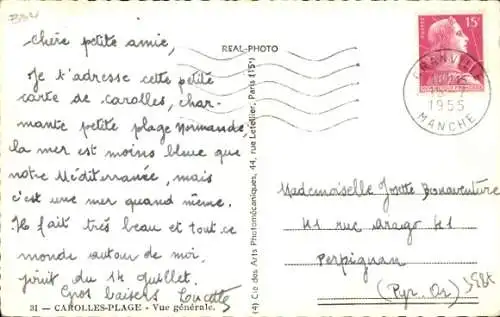 chère petite amie,
Je t'adresse cette petite
carte de carolles, char-
mante petite plage Normande,
la mer est moins bleue que
notre Méditerranée, mais
c'est une mer quand même.
Il fait très beau et tout ce
monde autour de moi
jouit du 14 juillet.
Gros baisers Lucette
31 - CAROLLES-PLAGE - Vue générale.
REAL-PHOTO
(4) Cie des Arts Photomécaniques, 44, rue Letellier, Paris (15e)
POSTES
15F
GRANVILLE
1955
MANCHE
Mademoiselle Josette Bonaventure
41 rue Arago 41
Perpignan
(Pyr. Or.)